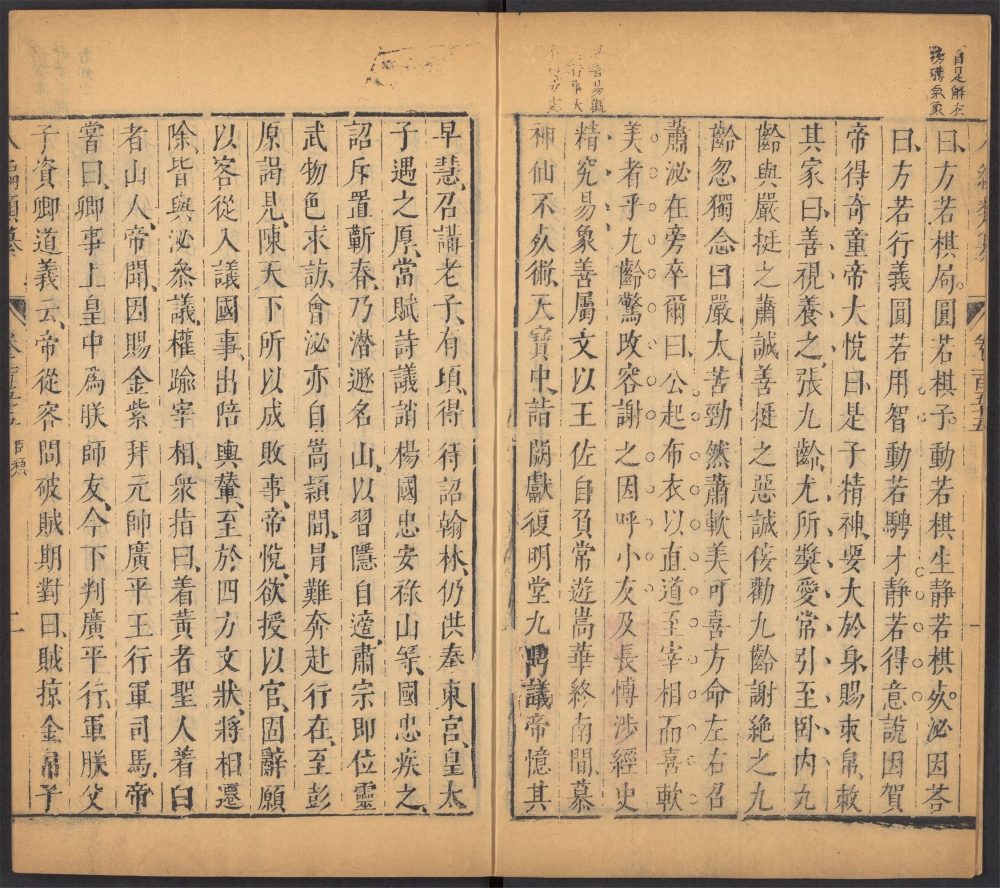 自足解衣
曰方若棋局圓若棋子動若棋生靜若棋死泌因荅
曰方若行義圓若用智動若騁才靜若得意說因賀
帝得奇童帝大悅曰是子精神要大於身賜束帛敕
其家曰善視養之張九齡尤所獎愛常引至卧内九
齡與嚴挺之蕭誠善挺之惡誠佞勸九齡謝絶之九
齡忽獨念曰嚴太苦勁然蕭軟美可喜方命左右召
蕭泌在旁卒爾曰公起布衣以直道至宰相而喜軟
美者乎九齡驚改容謝之因呼小友及長愽涉經史
精究易象善屬文以王佐自負常遊嵩華終南間慕
神仙不死術天寶中詣闕獻復明堂九鼎議帝憶其
早慧召講老子有頃得待詔翰林仍洪奉東宫皇太
子遇之厚當賦詩議誚楊國忠安祿山等國忠疾之
詔斥置蘄春乃潜遯名山以習隱自適肅宗即位靈
武物色求訪會泌亦自嵩潁間冐難奔赴行在至彭
原謁見陳天下所以成敗事帝悅欲授以官固辭願
以客從入議國事出陪輿輦至於四方文狀將相遷
除皆與泌叅議權踰宰相衆指曰着黄者聖人着白
者山人帝聞因賜金紫拜元帥廣平王行軍司馬帝
嘗曰卿事上皇中爲朕師友今下判廣平行軍朕父
子資卿道義云帝從容問破賊期對曰賊掠金帛子